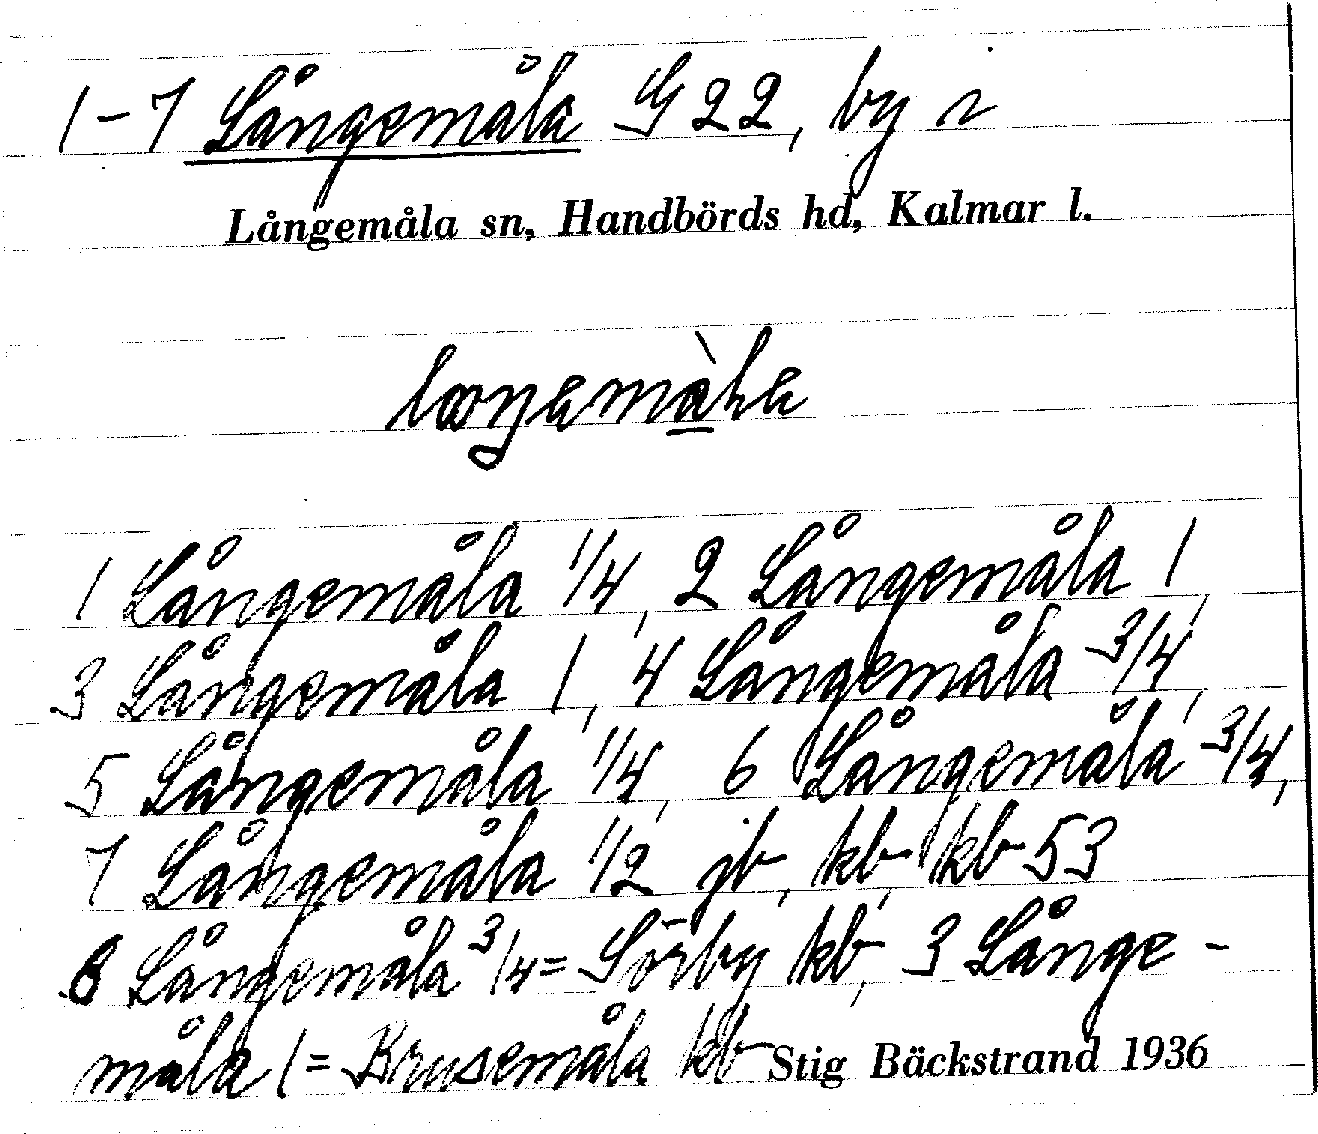 1-7 Långemåla G 22, by i
Långemåla sn, Handbörds hd, Kalmar l.
1 Långemåla 1/4, 2 Långemåla 1,
3 Långemåla 1, 4 Långemåla 3/4,
5 Långemåla 1/4, 6 Långemåla 3/4,
7 Långemåla 1/2 jb, kb, kb 53
8 Långemåla 3/4 = Sörby kb, 3 Långe-
måla 1 = Brusemåla kb Stig Bäckstrand 1936